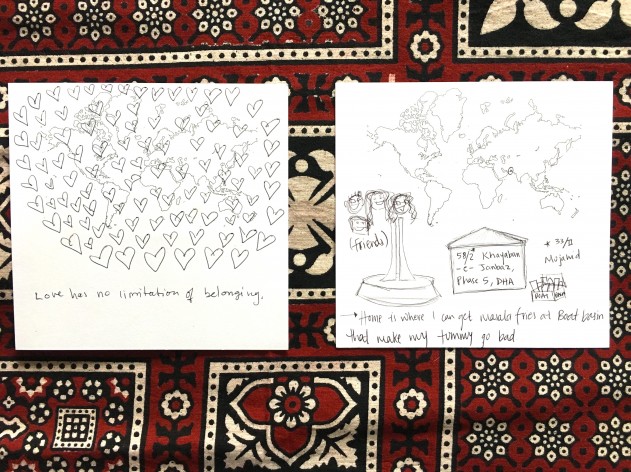 Love has no limitation of belonging.
(friends)
58/2 Khayaban
-e- Janbaz,
Phase 5, DHA
* 33/1
Mujahid
→ Home is where I can get masala fries at Boat basin
that make my tummy go bad